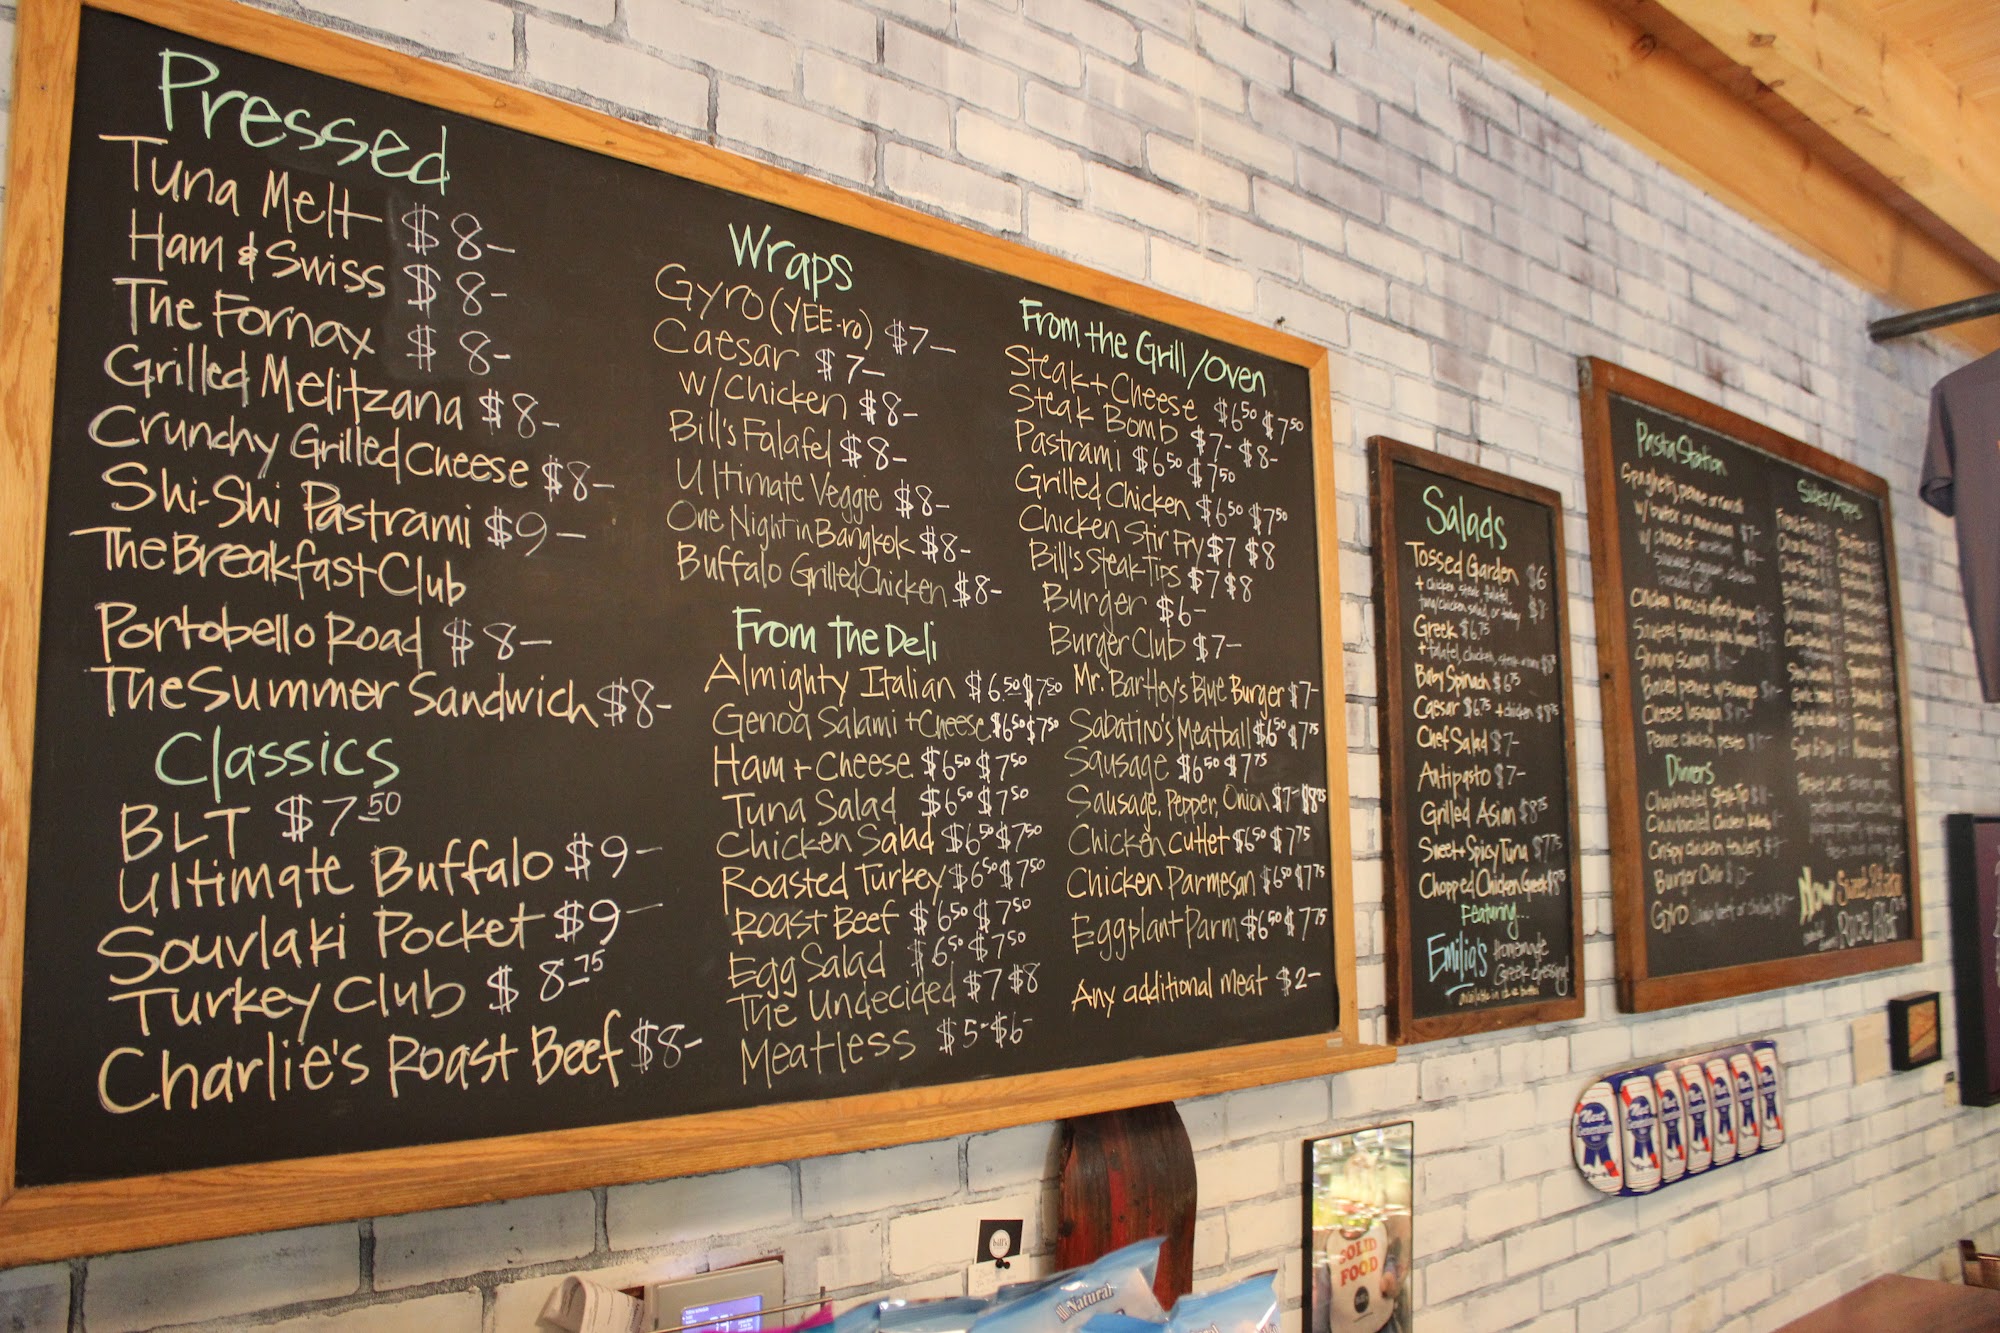 Pressed
Tuna Melt $8-
Ham & Swiss $8-
The Fornax $8-
Grilled Melitzana $8-
Crunchy Grilled Cheese $8-
Shi-Shi Pastrami $9-
The Breakfast Club
Portobello Road $8-
The Summer Sandwich $8-
Classics
BLT $7.50
Ultimate Buffalo $9-
Souvlaki Pocket $9-
Turkey Club $8.75
Charlie's Roast Beef $8-
Wraps
Gyro (YEE-ro) $7-
Caesar $7-
w/Chicken $8-
Bill's Falafel $8-
Ultimate Veggie $8-
One Night in Bangkok $8-
Buffalo Grilled Chicken $8-
From The Deli
Almighty Italian $6.50 $7.50
Genoa Salami + Cheese $6.50 $7.50
Ham + Cheese $6.50 $7.50
Tuna Salad $6.50 $7.50
Chicken Salad $6.50 $7.50
Roasted Turkey $6.50 $7.50
Roast Beef $6.50 $7.50
Egg Salad $6.50 $7.50
The Undecided $7 $8
Meatless $5- $6-
From the Grill/Oven
Steak + Cheese $6.50 $7.50
Steak Bomb $7- $8-
Pastrami $6.50 $7.50
Grilled Chicken $6.50 $7.50
Chicken Stir Fry $7 $8
Bill's Steak Tips $7 $8
Burger $6-
Burger Club $7-
Mr. Bartley's Blue Burger $7-
Sabatino's Meatball $6.50 $7.75
Sausage $6.50 $7.75
Sausage, Pepper, Onion $7- $8.75
Chicken Cutlet $6.50 $7.75
Chicken Parmesan $6.50 $7.75
Eggplant Parm $6.50 $7.75
Any additional meat $2-
Salads
Tossed Garden $6
+ chicken, steak, falafel,
tuna/chicken salad, or turkey
Greek $6.75
+ falafel, chicken, steak
Baby Spinach $6.75
Caesar $6.75 + chicken $8.75
Chef Salad $7-
Antipasto $7-
Grilled Asian $8.75
Sweet + Spicy Tuna $7.75
Chopped Chicken Greek $8.75
Featuring...
Emilia's Homemade
Greek dressing!
Pasta Station
Spaghetti, penne or
w/ butter or marinara
w/ choice of
Chicken broccoli alfredo
Shrimp Scampi
Baked penne w/ sausage
Cheese lasagna
Penne chicken pesto
Dinners
Charbroiled Steak Tip
Charbroiled Chicken Kabob
Crispy chicken tenders
Burger Club $10-
Gyro
Sides/Apps
Now Sweet Potato
Rice Pilaf
Next Generation
Next Generation
Next
Next
Next
SOLID
FOOD
bill's
All Natural